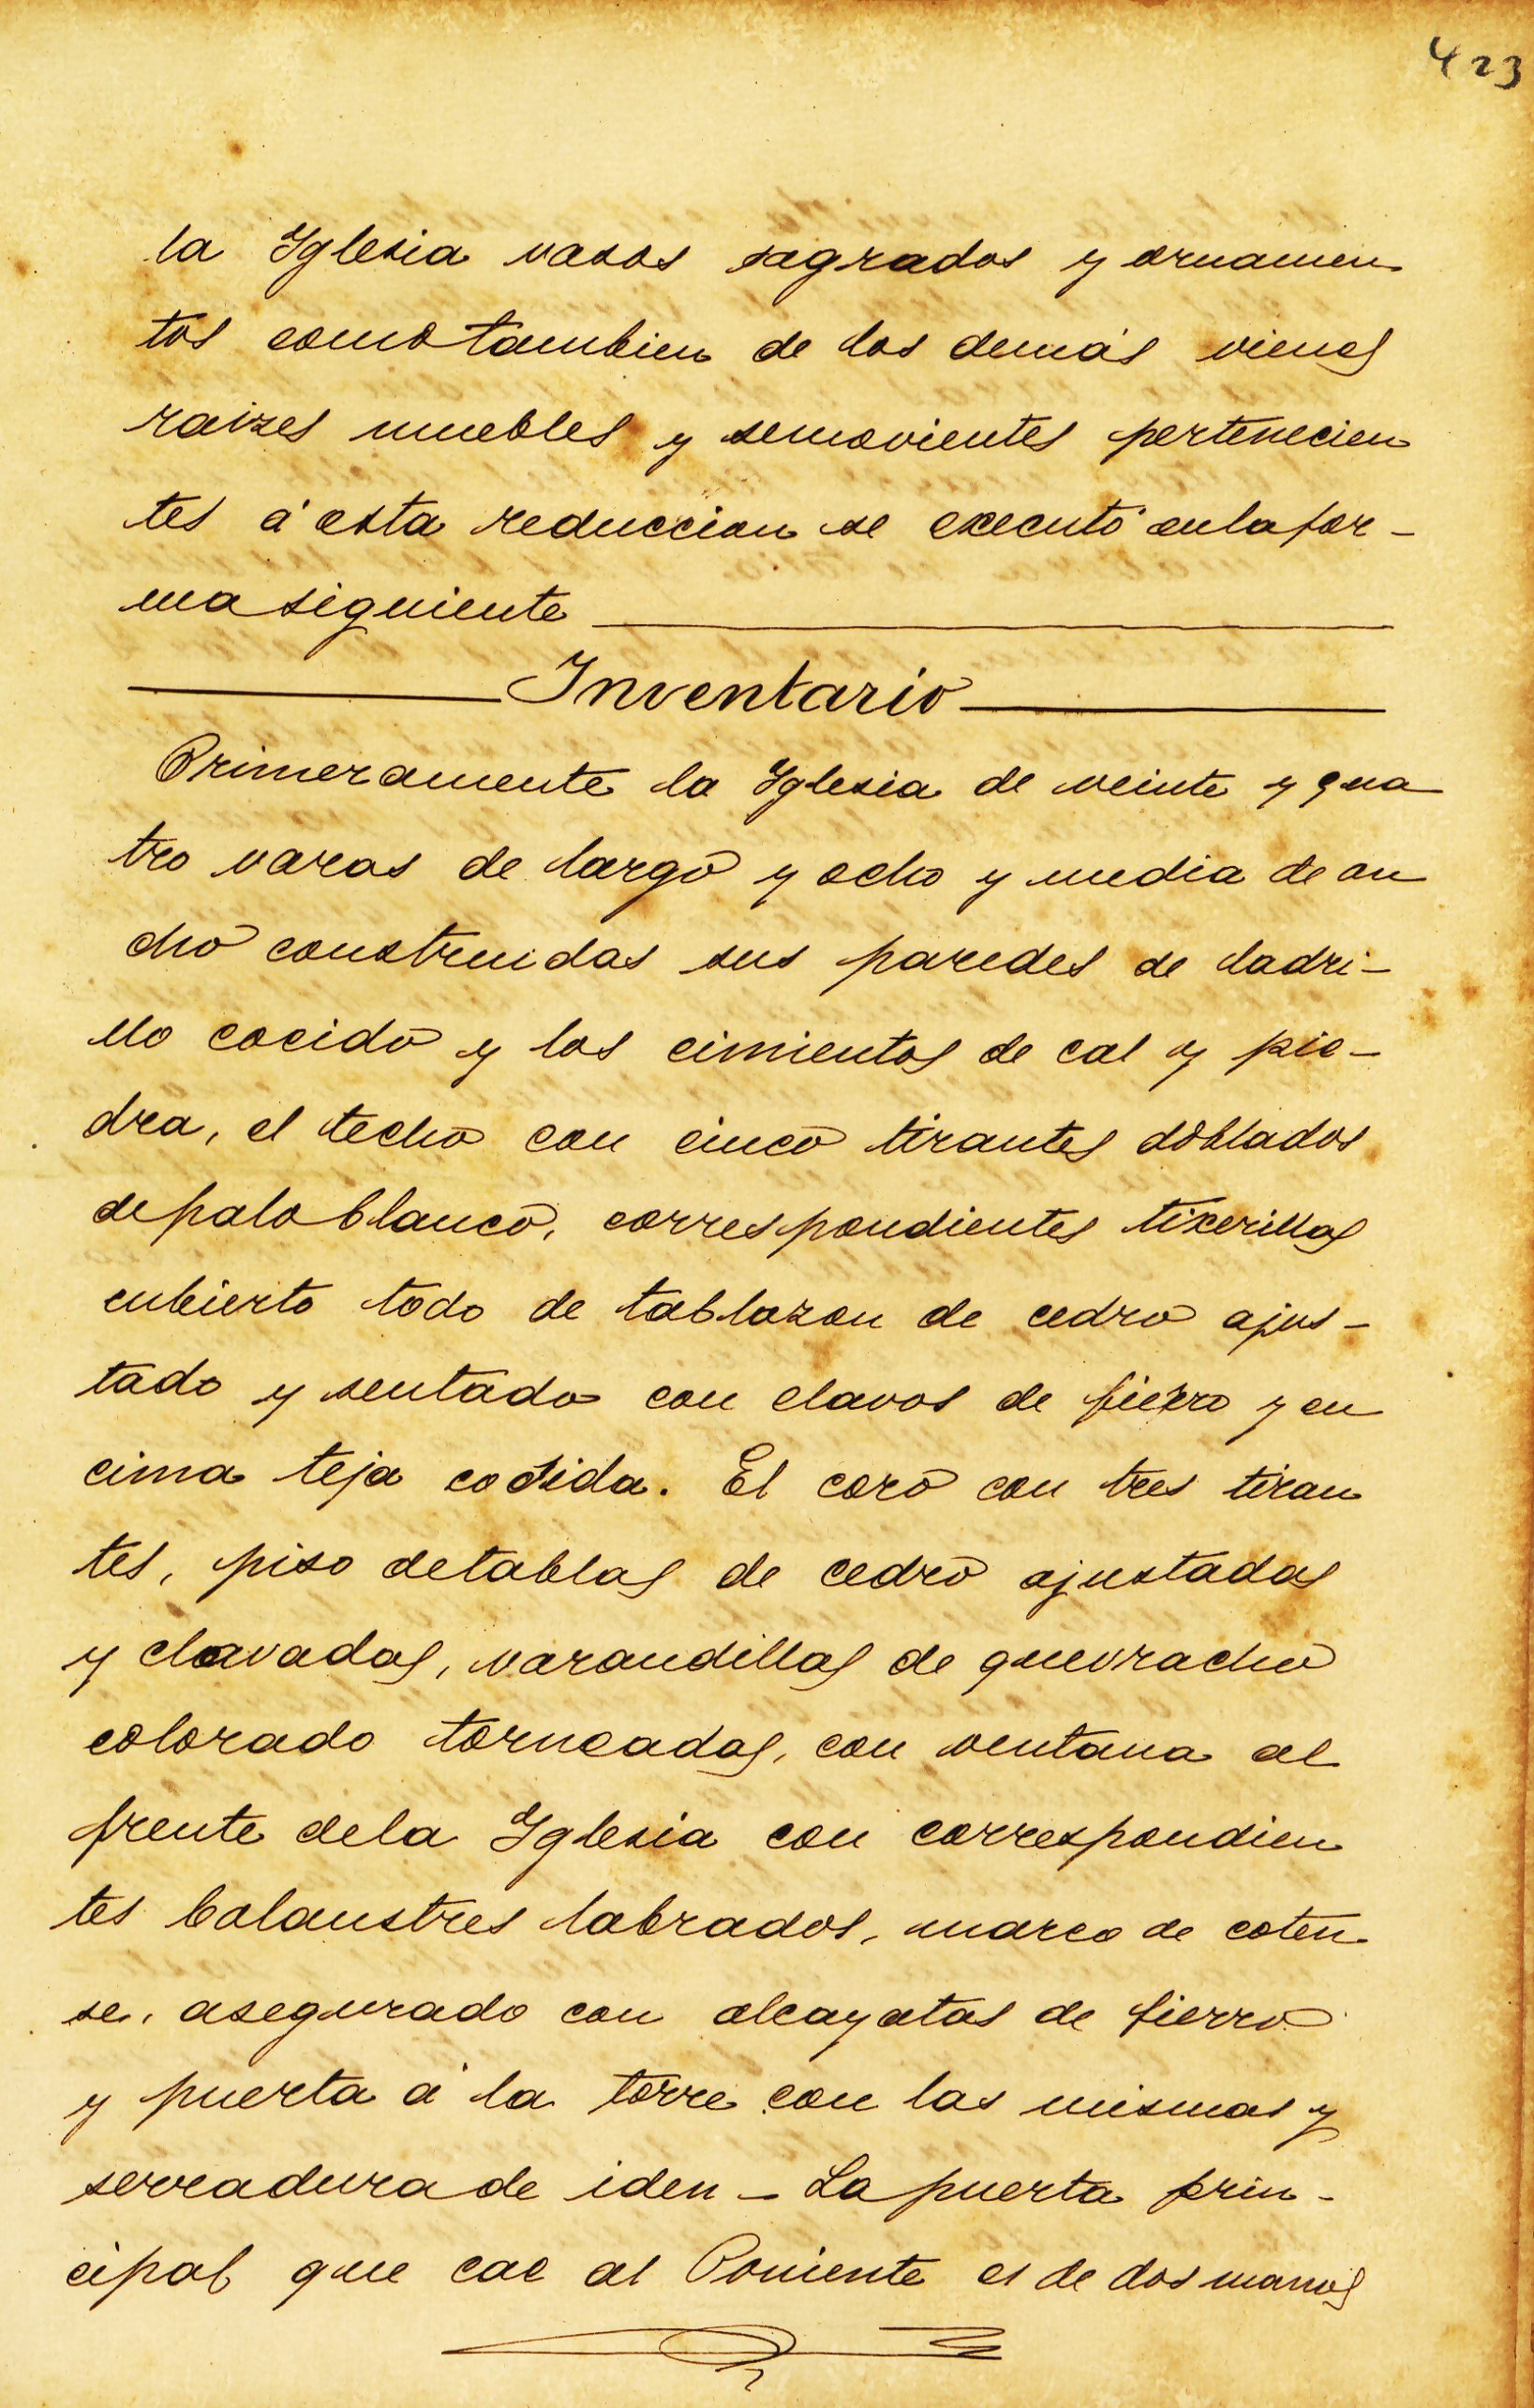 423
la Iglesia vasos sagrados y ornamen
tos como tambien de los demás vienes
raizes muebles y semovientes pertenecien
tes á esta reduccion se executó enlafor-
masiguiente
Inventario
Primeramente la Iglesia de veinte y qua
tro varas de largo y ocho y media de an
cho construidas sus paredes de ladri-
llo cocido y los cimientos de cal y pie-
dra, el techo con cinco tirantes doblados
depaloblanco, correspondientes tixerillas
cubierto todo de tablazon de cedro ajus-
tado y sentado con clavos de fierro y en
cima teja cosida. El coro con tres tiran
tes, piso detablas de cedro ajustadas
y clavadas, varandillas de quevracho
colorado torneadas, con ventana al
frente dela Iglesia con correspondien
tes balaustres labrados, marco de coten
se, asegurado con alcayatas de fierro
y puerta á la torre con las mismas y
serradurade iden - La puerta prin-
cipal que cae al Poniente es de dos manos